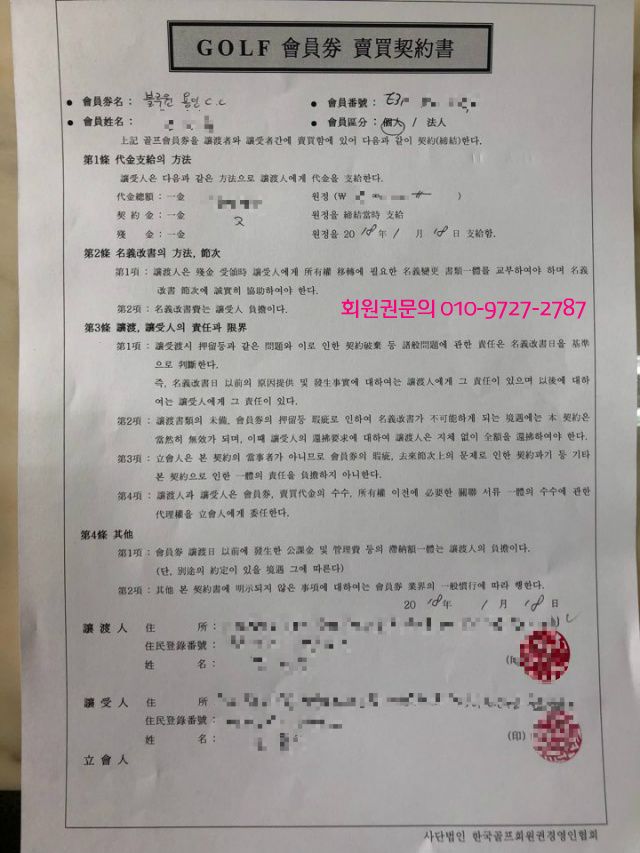 GOLF 會員券 賣買契約書
• 會員券名 : 블루원 용인 C.C
• 會員番號 :
• 會員姓名 :
• 會員區分 : 個人 / 法人
上記 골프會員券을 讓渡者와 讓受者간에 賣買함에 있어 다음과 같이 契約(締結)한다.
第1條 代金支給의 方法
讓受人은 다음과 같은 方法으로 讓渡人에게 代金을 支給한다.
代金總額 : 一金 원정 (W )
契 約 金 : 一金 원정을 締結當時 支給
殘 金 : 一金 원정을 2018年 1 月 18日 支給함.
第2條 名義改書의 方法, 節次
제1項 : 讓渡人은 殘金 受領時 讓受人에게 所有權 移轉에 必要한 名義變更 書類一體를 교부하여야 하며 名義
改書 節次에 誠實히 協助하여야 한다.
제2項 : 名義改書費는 讓受人 負擔이다.
회원권문의 010-9727-2787
第3條 讓渡, 讓受人의 責任과 限界
제1項 : 讓受渡시 押留등과 같은 問題와 이로 인한 契約破棄 등 諸般問題에 관한 責任은 名義改書日을 基準
으로 判斷한다.
즉, 名義改書日 以前의 原因提供 및 發生事實에 대하여는 讓渡人에게 그 責任이 있으며 以後에 대하
여는 讓受人에게 그 責任이 있다.
제2項 : 讓渡書類의 未備, 會員券의 押留등 瑕疵로 인하여 名義改書가 不可能하게 되는 境遇에는 本 契約은
當然히 無效가 되며, 이때 讓受人의 還拂要求에 대하여 讓渡人은 지체 없이 全額을 還拂하여야 한다.
제3項 : 立會人은 본 契約의 當事者가 아니므로 會員券의 瑕疵, 去來節次上의 문제로 인한 契約파기 등 기타
본 契約으로 인한 一體의 責任을 負擔하지 아니한다.
제4項 : 讓渡人과 讓受人은 會員券, 賣買代金의 수수, 所有權 이전에 必要한 關聯 서류 一體의 수수에 관한
代理權을 立會人에게 委任한다.
第4條 其他
제1項 : 會員券 讓渡日 以前에 發生한 公課金 및 管理費 등의 滯納額一體는 讓渡人의 負擔이다.
(단, 別途의 約定이 있을 境遇 그에 따른다)
제2項 : 其他 본 契約書에 明示되지 않은 事項에 대하여는 會員券 業界의 一般慣行에 따라 행한다.
2018年 1月 18日
讓 渡 人 住 所 :
住民登錄番號 :
姓 名 :
讓 受 人 住 所 :
住民登錄番號 :
姓 名 : (印)
立 會 人
사단법인 한국골프회원권경영인협회